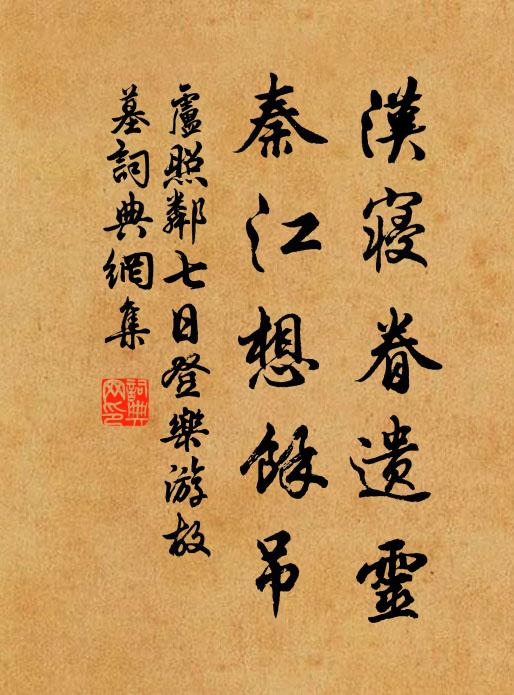 漢寢眷遺靈
秦江想餘吊
盧照鄰七日登樂游故
墓詞典網集